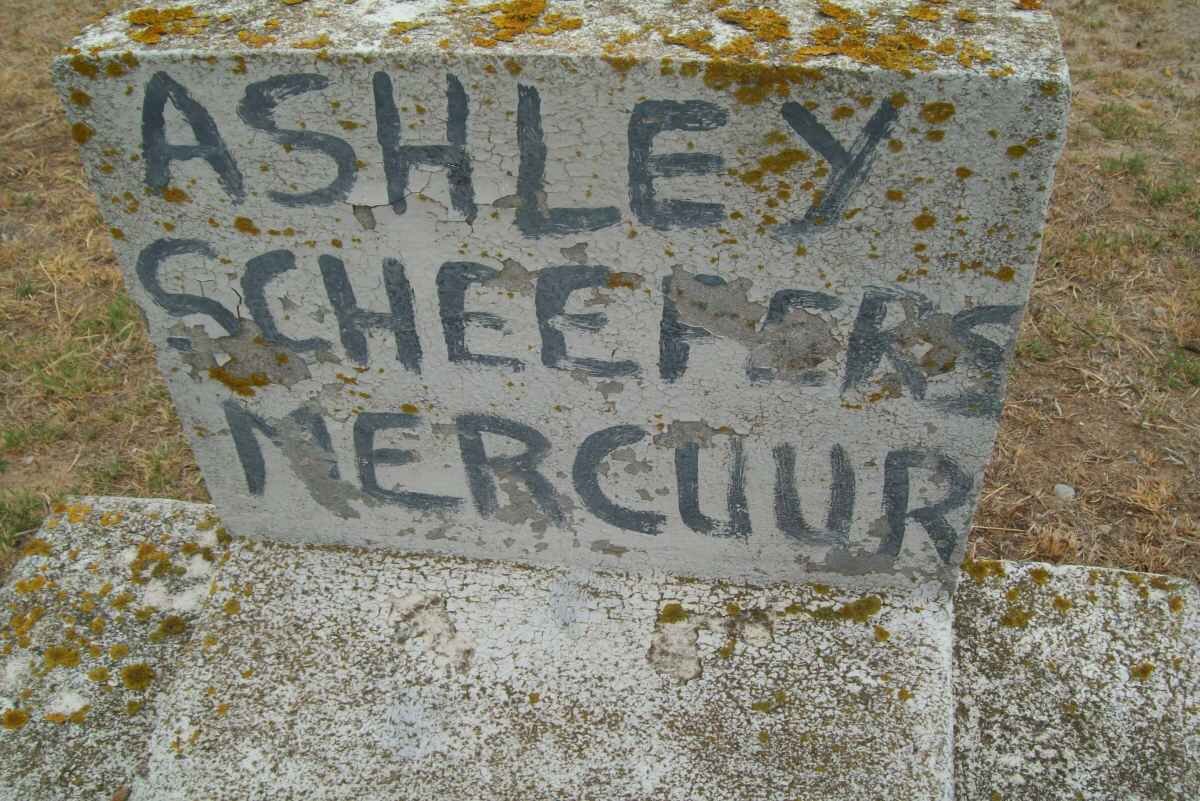 ASHLEY
SCHEEPERS
MERCUUR